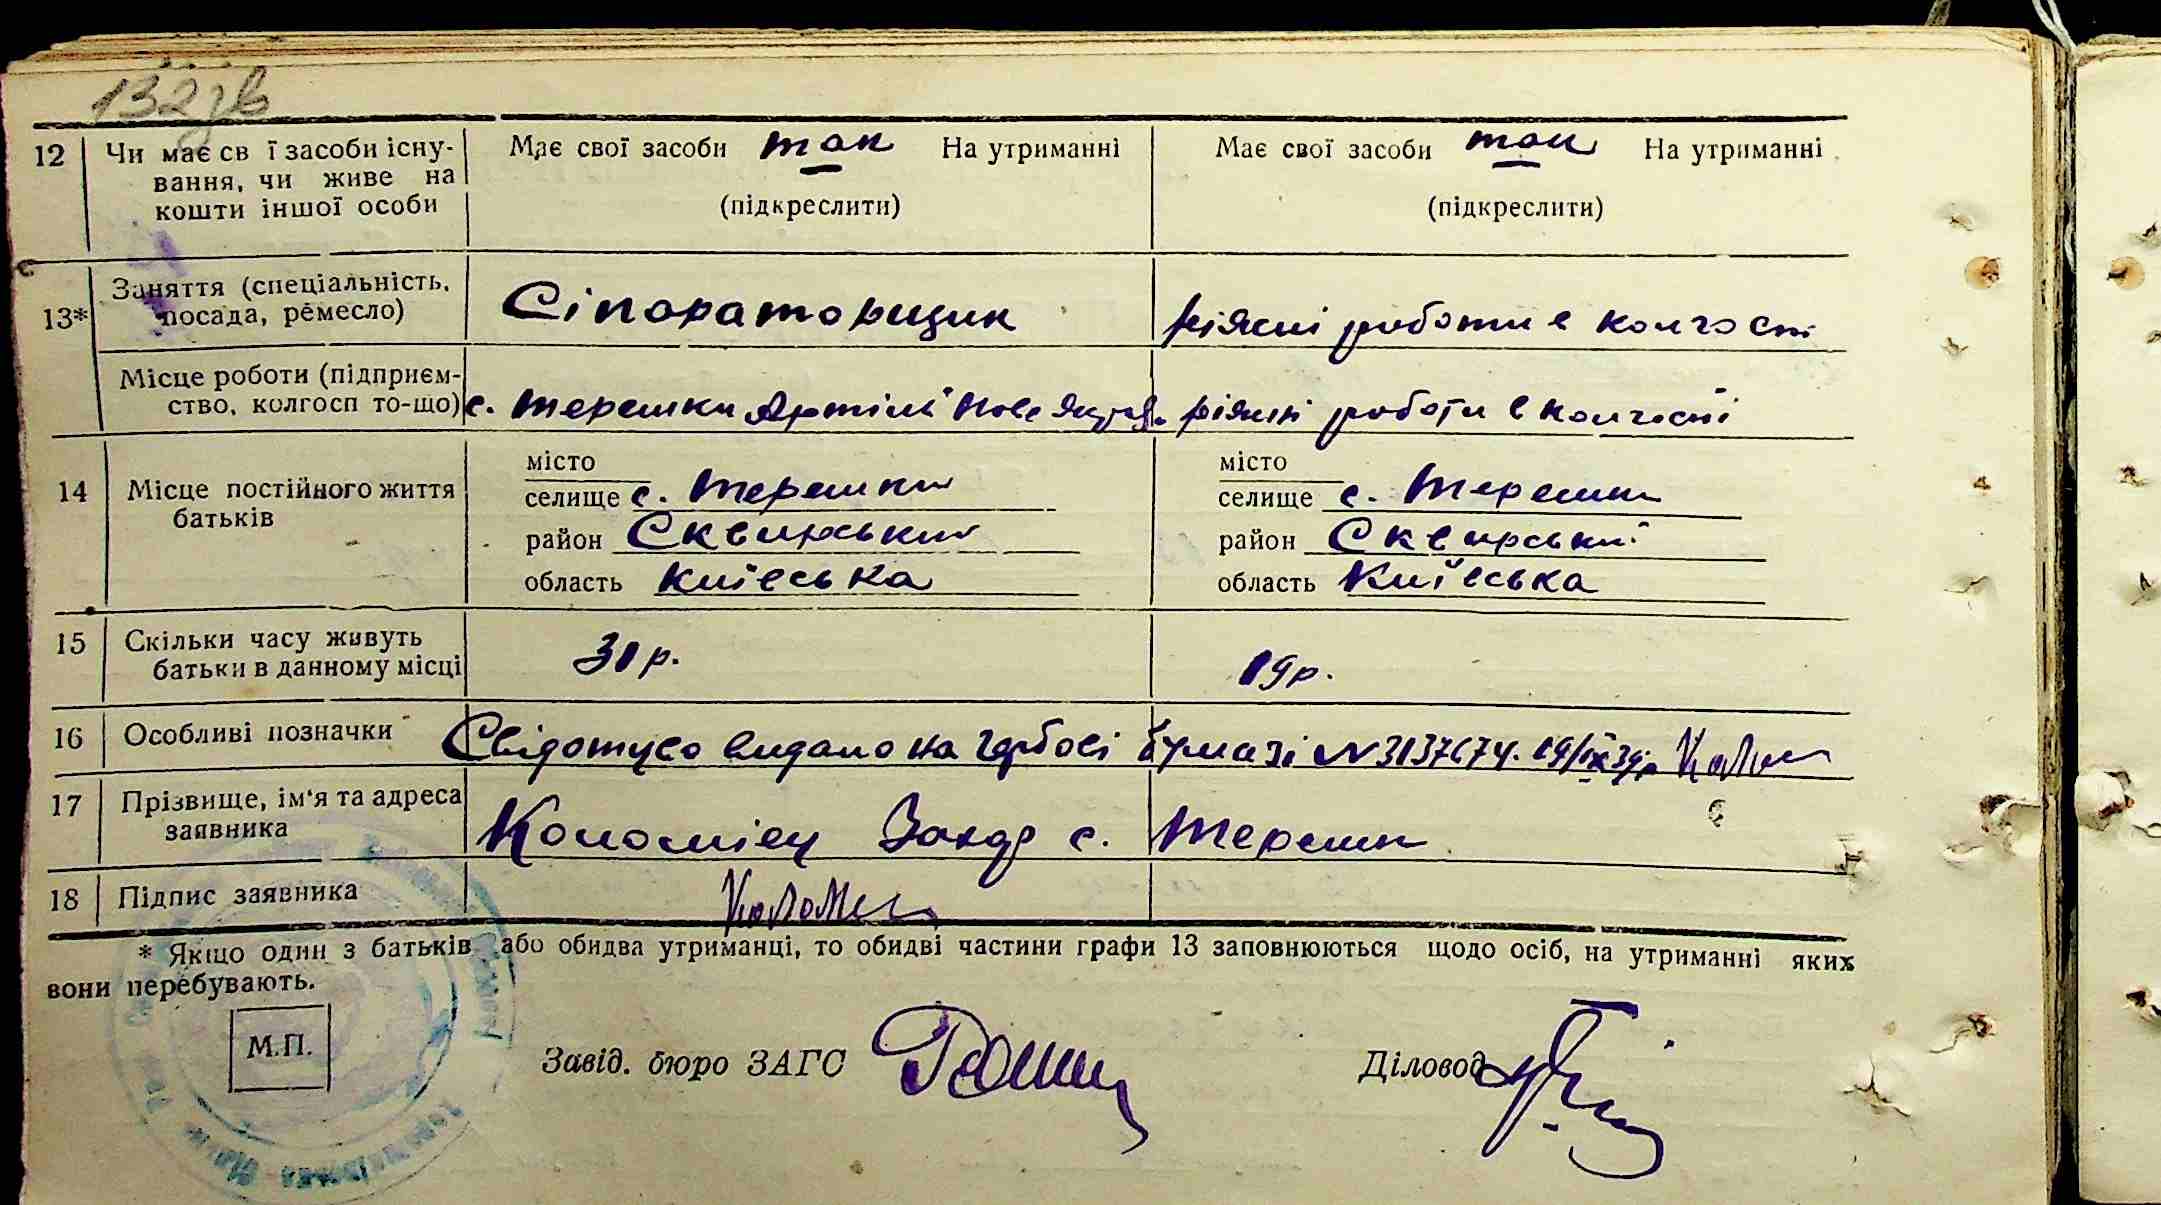 132 зв
12 Чи має св ї засоби існу-
вання, чи живе на
кошти іншої особи
Має свої засоби так На утриманні
(підкреслити)
Має свої засоби так На утриманні
(підкреслити)
13* Заняття (спеціальність,
посада, ремесло)
Сіпораторщик
ріжні роботи в колгоспі
Місце роботи (підприєм-
ство, колгосп то-що)
с. Терешки Артіль Нове
ріжні роботи в колгоспі
14 Місце постійного життя
батьків
місто
селище с. Терешки
район Сквирський
область Київська
місто
селище с. Терешки
район Сквирський
область Київська
15 Скільки часу живуть
батьки в данному місці
31 р.
19 р.
16 Особливі позначки Свідотцво видано на гербові бумазі № 3137674. 19/IX 39 р.
17 Прізвище, ім'я та адреса
заявника
Коломієц Захар с. Терешки
18 Підпис заявника
* Якщо один з батьків або обидва утриманці, то обидві частини графи 13 заповнюються щодо осіб, на утриманні яких
вони перебувають.
М.П.
Завід. бюро ЗАГС
Діловод